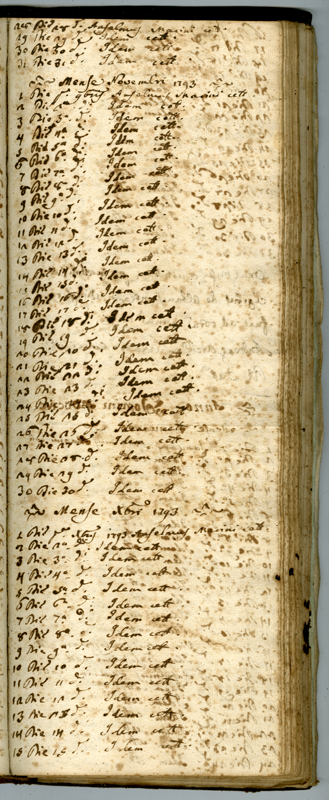 29 Die 29 d. Idem cett
30 Die 30 d. Idem cett
31 Die 31 d. Idem cett
Mense Novembri 1793
1 Die 1a 9bris Anselmus cett
2 Die 2a d. Idem cett
3 Die 3a d. Idem cett
4 Die 4a d. Idem cett
5 Die 5a d. Idem cett
6 Die 6a d. Idem cett
7 Die 7a d. Idem cett
8 Die 8a d. Idem cett
9 Die 9a d. Idem cett
10 Die 10 d. Idem cett
11 Die 11 d. Idem cett
12 Die 12 d. Idem cett
13 Die 13 d. Idem cett
14 Die 14 d. Idem cett
15 Die 15 d. Idem cett
16 Die 16 d. Idem cett
17 Die 17 d. Idem cett
18 Die 18 d. Idem cett
19 Die 19 d. Idem cett
20 Die 20 d. Idem cett
21 Die 21 d. Idem cett
22 Die 22 d. Idem cett
23 Die 23 d. Idem cett
24 Die
25 Die 25 d. Idem cett
26 Die 26 d. Idem cett
27 Die 27 d. Idem cett
28 Die 28 d. Idem cett
29 Die 29 d. Idem cett
30 Die 30 d. Idem cett
Mense Xbris 1793
1 Die 1a Xbris 1793 Anselmus cett
2 Die 2a d. Idem cett
3 Die 3a d. Idem cett
4 Die 4a d. Idem cett
5 Die 5a d. Idem cett
6 Die 6a d. Idem cett
7 Die 7a d. Idem cett
8 Die 8a d. Idem cett
9 Die 9a d. Idem cett
10 Die 10 d. Idem cett
11 Die 11 d. Idem cett
12 Die 12 d. Idem cett
13 Die 13 d. Idem cett
14 Die 14 d. Idem cett
15 Die 15 d. Idem cett